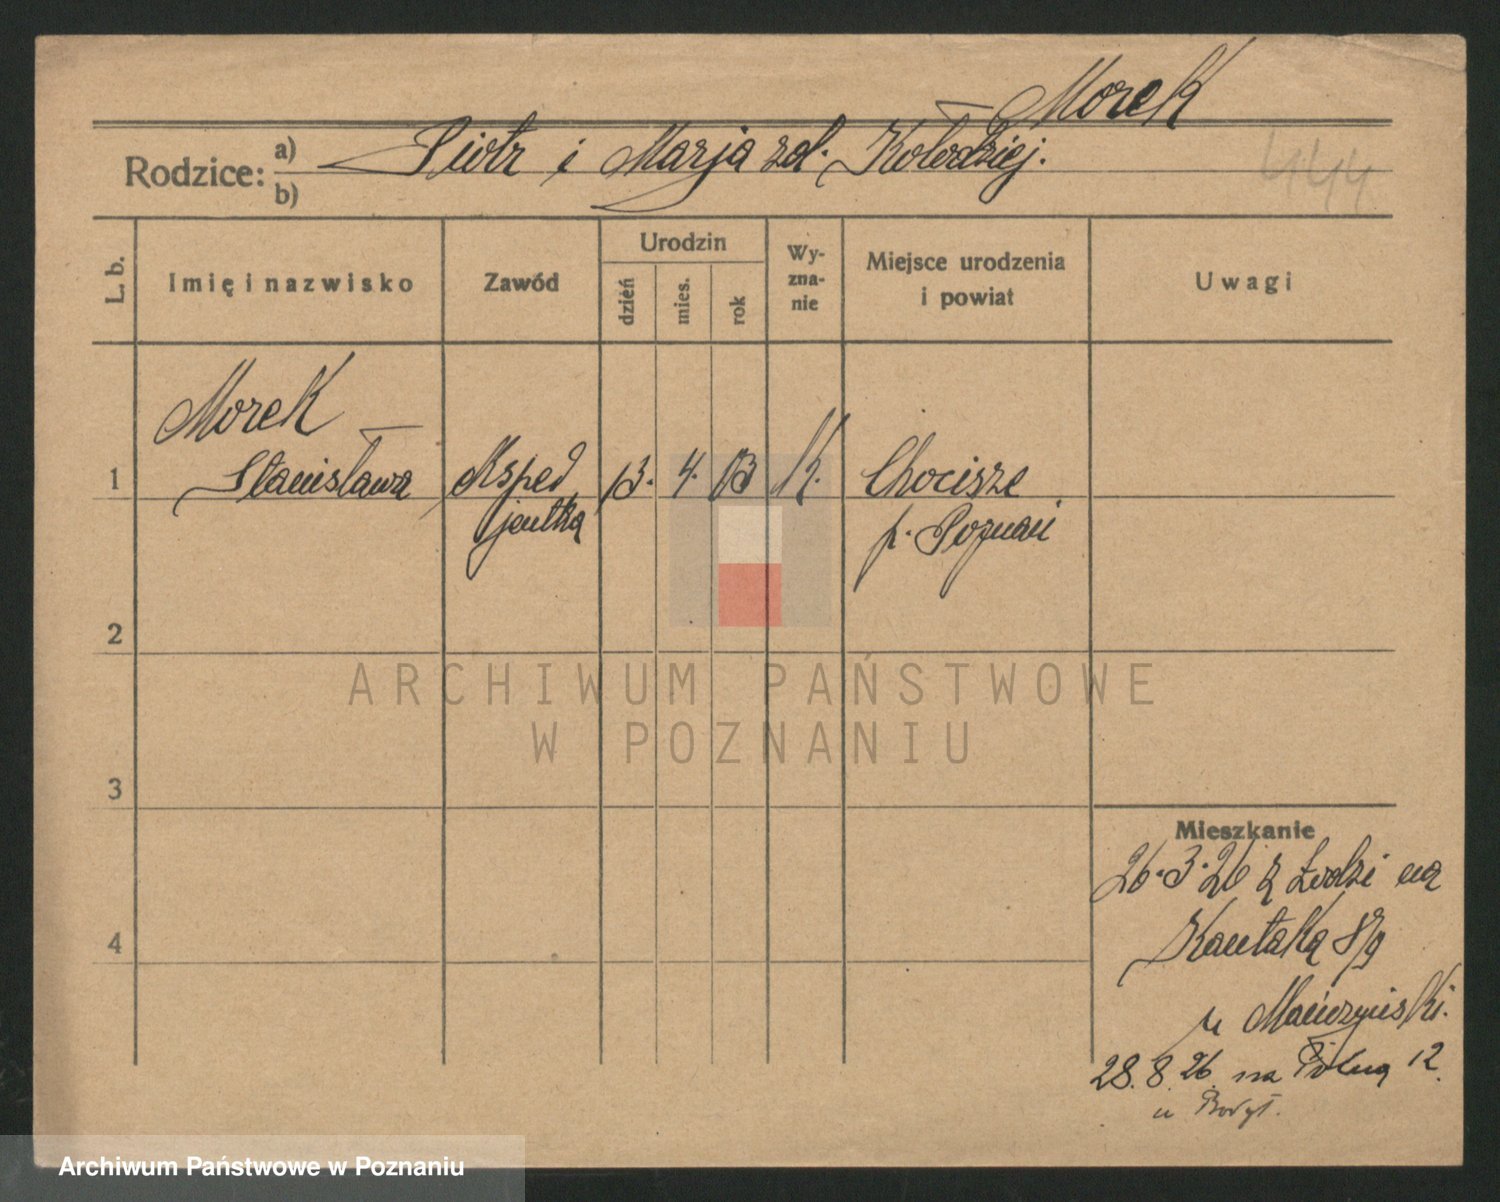 Morek
Rodzice: a) Piotr i Marja zd. Kołodziej.
b)
444
L. b.
Imię i nazwisko
Zawód
Urodzin
dzień
mies.
rok
Wy-
zna-
nie
Miejsce urodzenia
i powiat
Uwagi
Morek
1 Stanisława Ksped 13. 4. 03 K. Chocisze
jentka p. Poznań
2
3
4
Mieszkanie
26.3.26 z Łodzi na
Kantaka 8/9
u
28.8.26. na 12.
u
ARCHIWUM PAŃSTWOWE
W POZNANIU
Archiwum Państwowe w Poznaniu